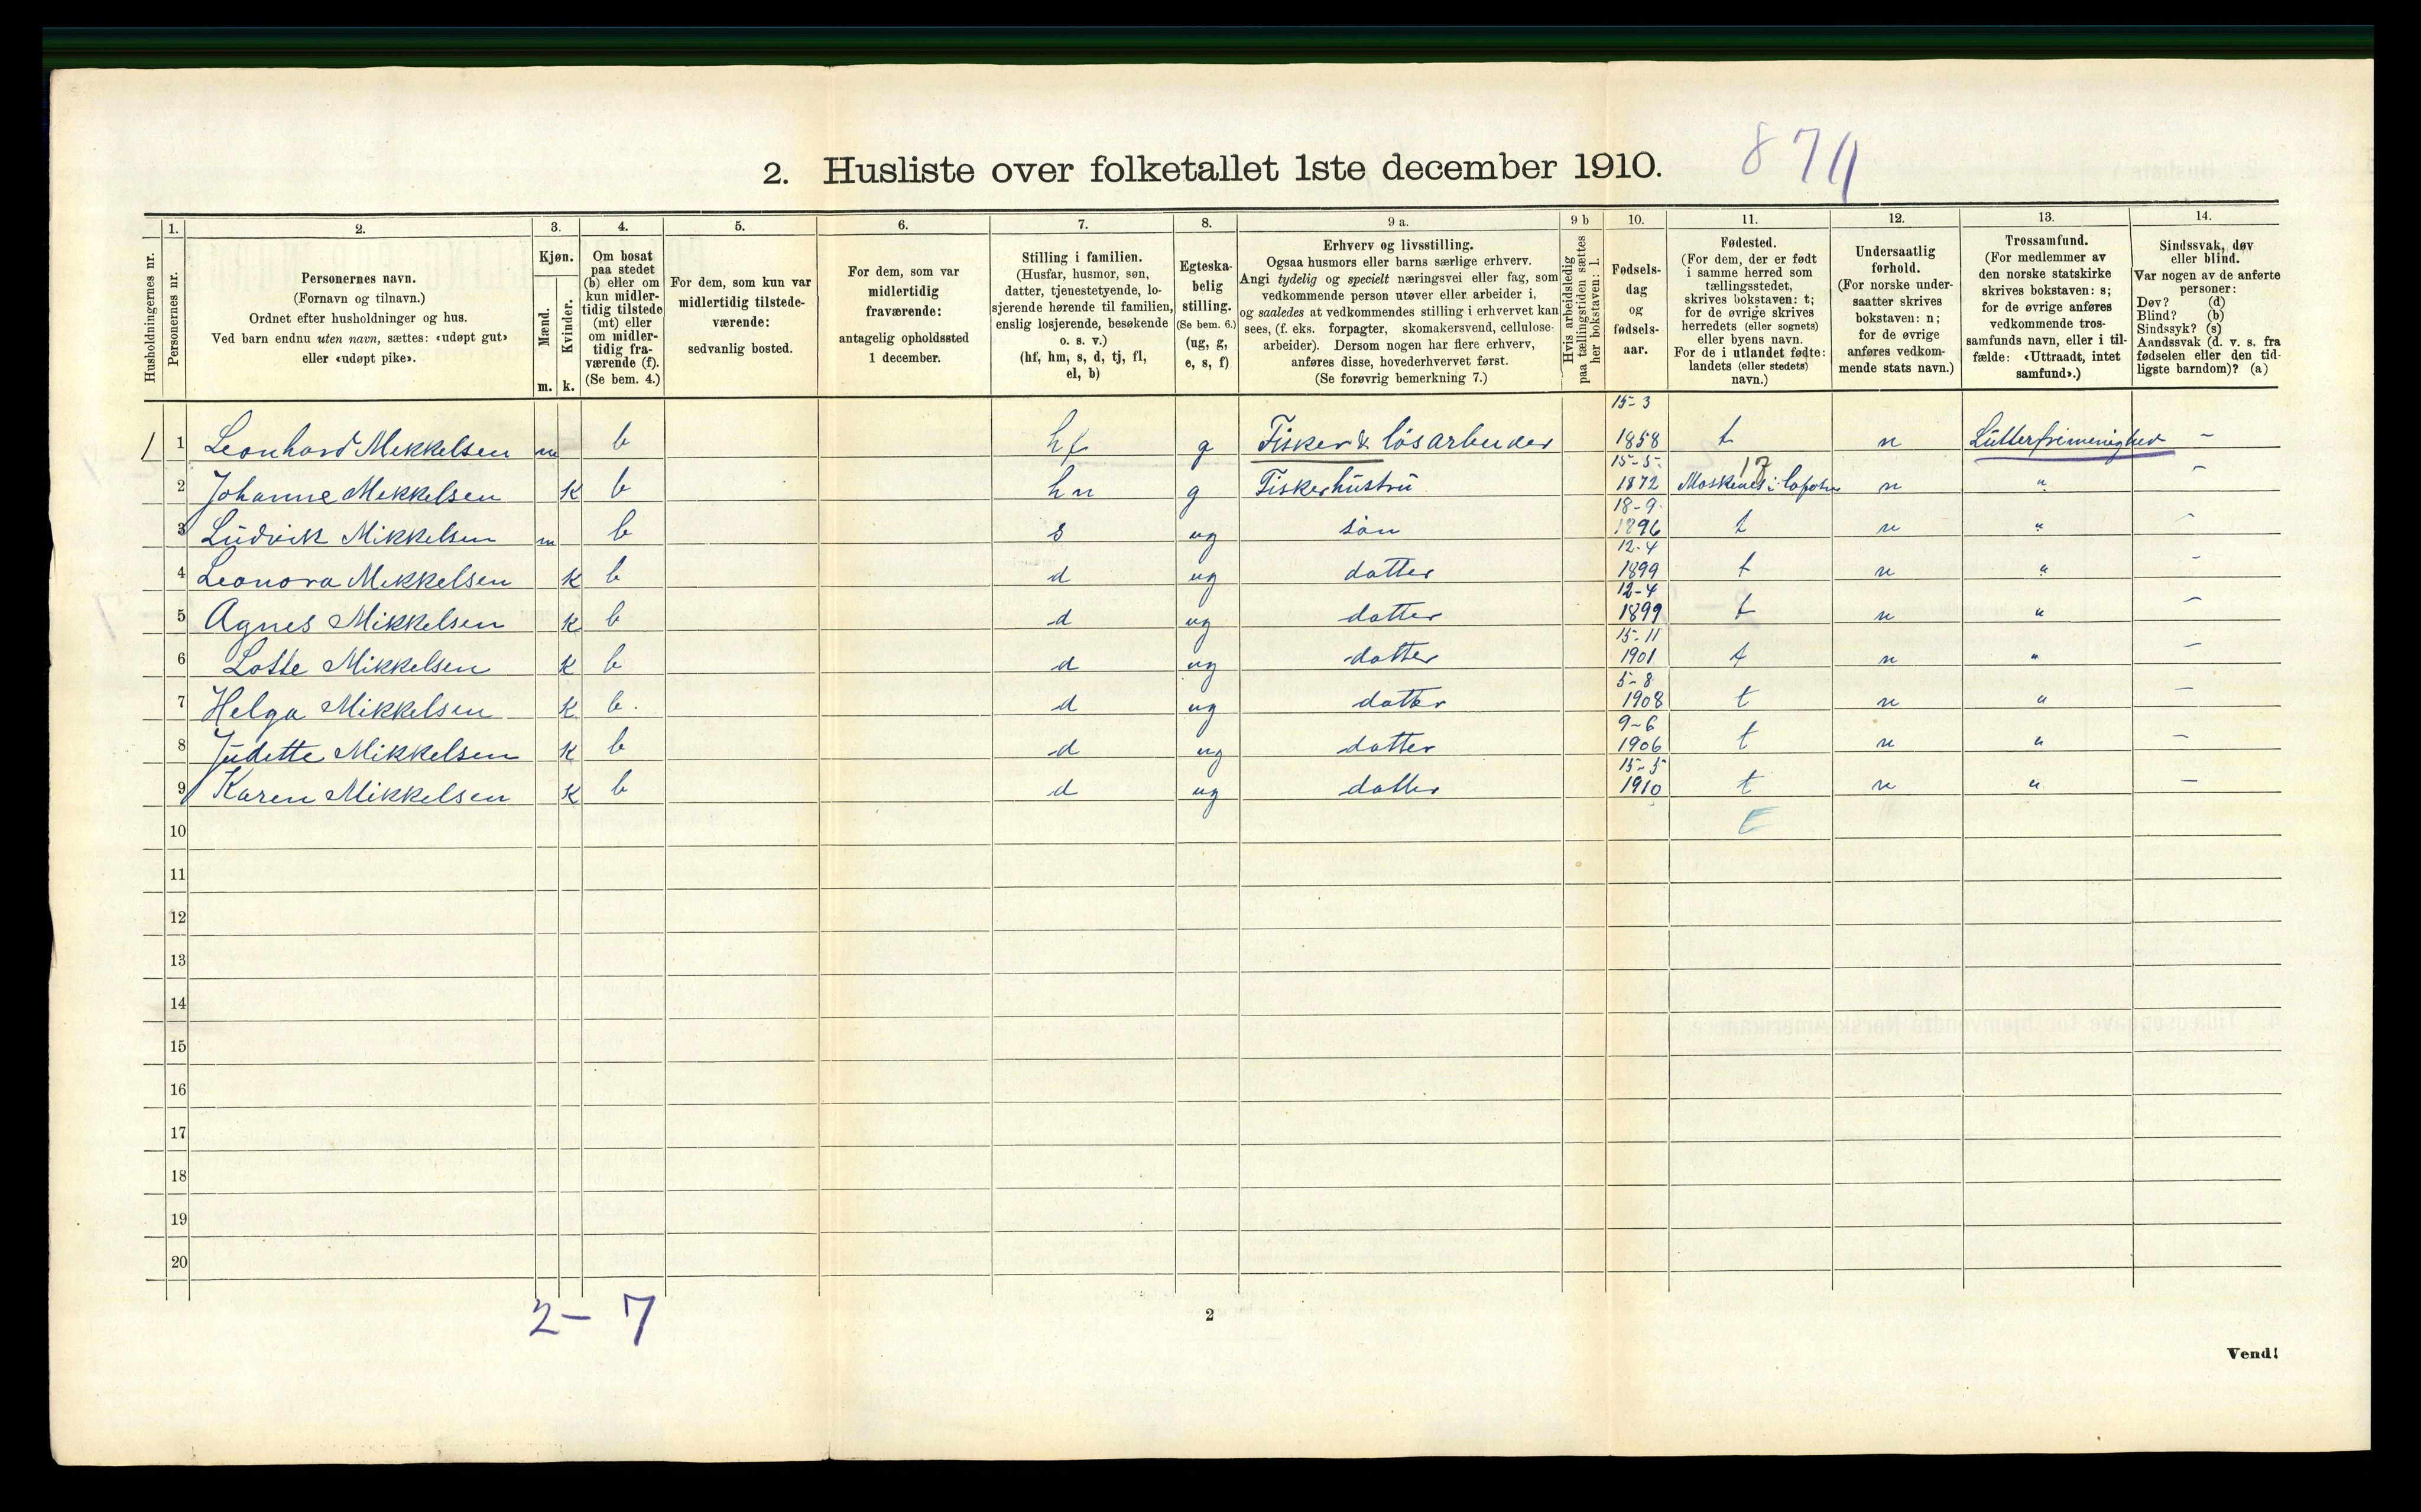 2. Husliste over folketallet 1ste december 1910.
874
1.
2.
3.
4.
5.
6.
7.
8.
9 a.
9 b
10.
11.
12.
13.
14.
Husholdningernes nr.
Personernes nr.
Personernes navn.
(Fornavn og tilnavn.)
Ordnet efter husholdninger og hus.
Ved barn endnu uten navn, sættes: «udøpt gut»
eller «udøpt pike».
Kjøn.
Mænd.
m.
Kvinder.
k.
Om bosat
paa stedet
(b) eller om
kun midler-
tidig tilstede
(mt) eller
om midler-
tidig fra-
værende (f).
(Se bem. 4.)
For dem, som kun var
midlertidig tilstede-
værende:
sedvanlig bosted.
For dem, som var
midlertidig
fraværende:
antagelig opholdssted
1 december.
Stilling i familien.
(Husfar, husmor, søn,
datter, tjenestetyende, lo-
sjerende hørende til familien,
enslig losjerende, besøkende
o. s. v.)
(hf, hm, s, d, tj, fl,
el, b)
Egteska-
belig
stilling.
(Se bem. 6.)
(ug, g,
e, s, f)
Erhverv og livsstilling.
Ogsaa husmors eller barns særlige erhverv.
Angi tydelig og specielt næringsvei eller fag, som
vedkommende person utøver eller arbeider i,
og saaledes at vedkommendes stilling i erhvervet kan
sees, (f. eks. forpagter, skomakersvend, cellulose-
arbeider). Dersom nogen har flere erhverv,
anføres disse, hovederhvervet først.
(Se forøvrig bemerkning 7.)
Hvis arbeidsledig
paa tællingstiden sættes
her bokstaven: l.
Fødsels-
dag
og
fødsels-
aar.
Fødested.
(For dem, der er født
i samme herred som
tællingsstedet,
skrives bokstaven: t;
for de øvrige skrives
herredets (eller sognets)
eller byens navn.
For de i utlandet fødte:
landets (eller stedets)
navn.)
Undersaatlig
forhold.
(For norske under-
saatter skrives
bokstaven: n;
for de øvrige
anføres vedkom-
mende stats navn.)
Trossamfund.
(For medlemmer av
den norske statskirke
skrives bokstaven: s;
for de øvrige anføres
vedkommende tros-
samfunds navn, eller i til-
fælde: «Uttraadt, intet
samfund».)
Sindssvak, døv
eller blind.
Var nogen av de anførte
personer:
Døv? (d)
Blind? (b)
Sindssyk? (s)
Aandssvak (d. v. s. fra
fødselen eller den tid-
ligste barndom)? (a)
1 1 Leonhard Mikkelsen m b hf g Fisker & løsarbeider 15-3 1858 t n Lutterfrimenighed -
2 Johanne Mikkelsen k b hn g Fiskerhustru 15-5- 1872 Moskenes i Lofoten 17 n " -
3 Ludvik Mikkelsen m b s ug søn 18-9 1896 t n " -
4 Leonora Mikkelsen k b d ug datter 12-4 1899 t n " -
5 Agnes Mikkelsen k b d ug datter 12-4 1899 t n " -
6 Lotte Mikkelsen k b d ug datter 15-11 1901 t n " -
7 Helga Mikkelsen k b. d ug datter 5-8 1908 t n " -
8 Judette Mikkelsen k b d ug datter 9-6 1906 t n " -
9 Karen Mikkelsen k b d ug datter 15-5 1910 t n " -
10
11
12
13
14
15
16
17
18
19
20
2-7
2
Vend!